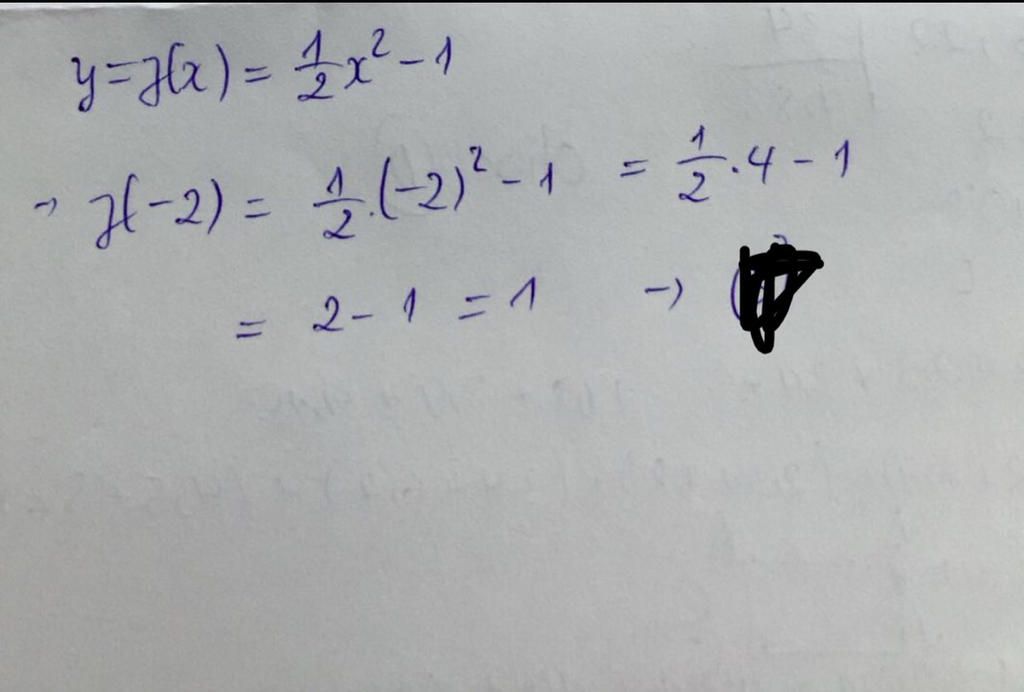 y = f(x) = 1/2 x² - 1
→ f(-2) = 1/2 . (-2)² - 1 = 1/2 . 4 - 1
= 2 - 1 = 1 →